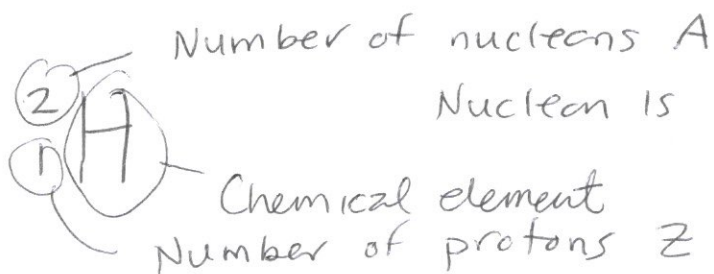 Number of nucleons A
2
Nucleon is
H
1
Chemical element
Number of protons Z